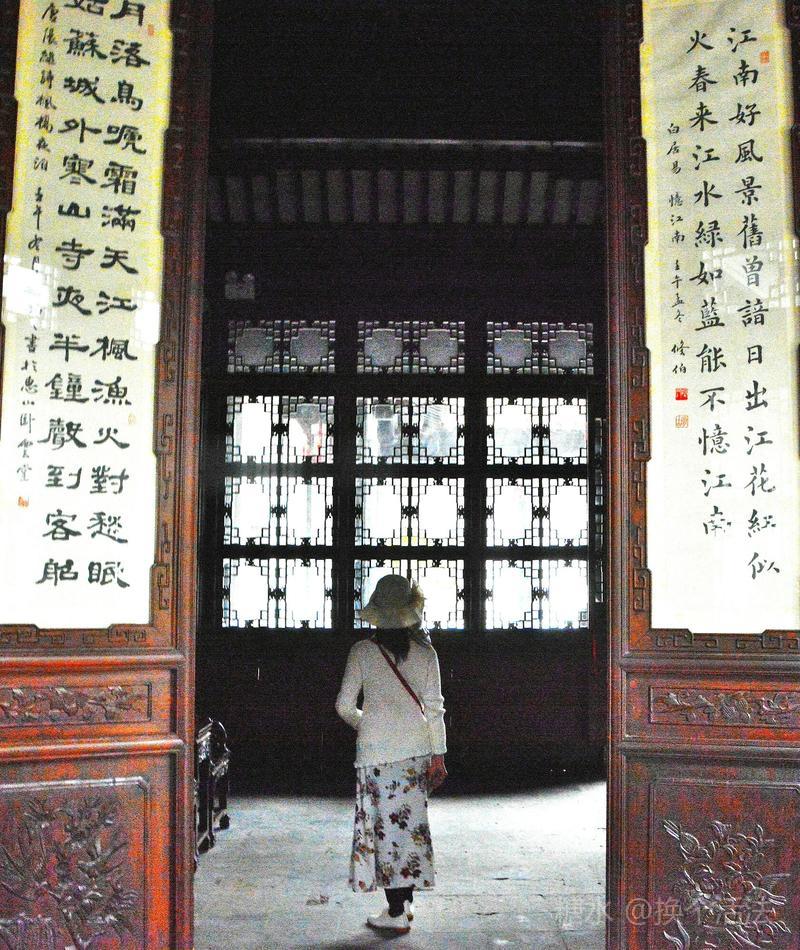 江南好風景舊曾諳日出江花紅似
火春来江水緑如藍能不憶江南
白居易 憶江南 壬午孟冬 修伯
月落烏嗁霜滿天江楓漁火對愁眠
姑蘇城外寒山寺夜半鐘聲到客船
唐張繼詩楓橋夜泊 壬午冬月 書於惠山
糖水 @换个活法